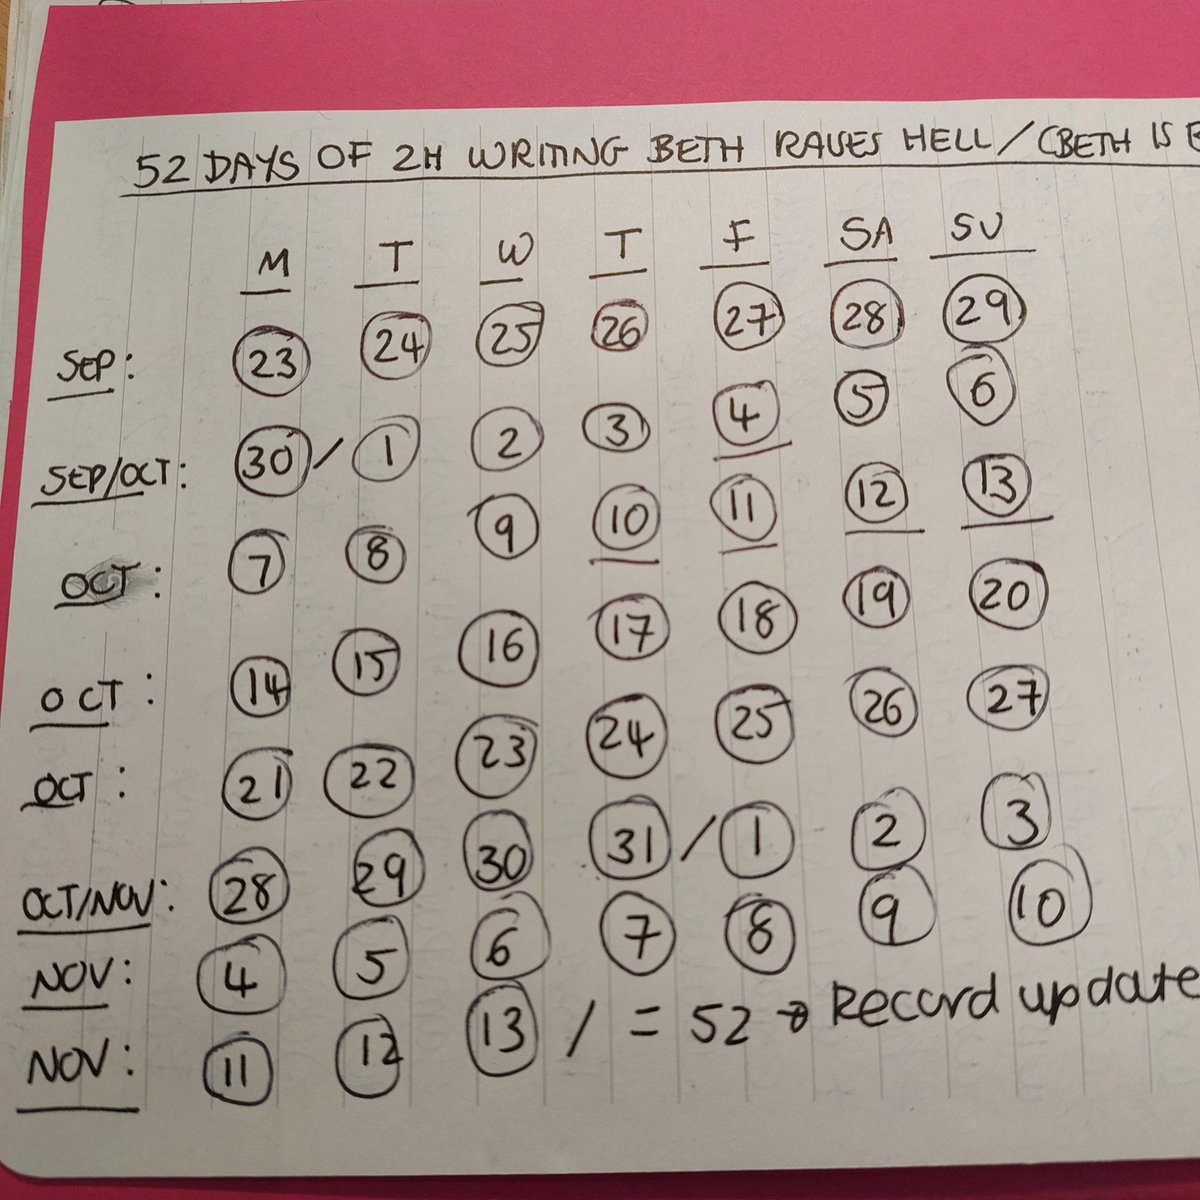 52 DAYS OF 2H WRITING BETH RAVES HELL / (BETH IS
M T W T F SA SU
SEP: 23 24 25 26 27 28 29
SEP/OCT: 30 / 1 2 3 4 5 6
OCT: 7 8 9 10 11 12 13
OCT: 14 15 16 17 18 19 20
OCT: 21 22 23 24 25 26 27
OCT/NOV: 28 29 30 31 / 1 2 3
NOV: 4 5 6 7 8 9 10
NOV: 11 12 13 / = 52 → Record update